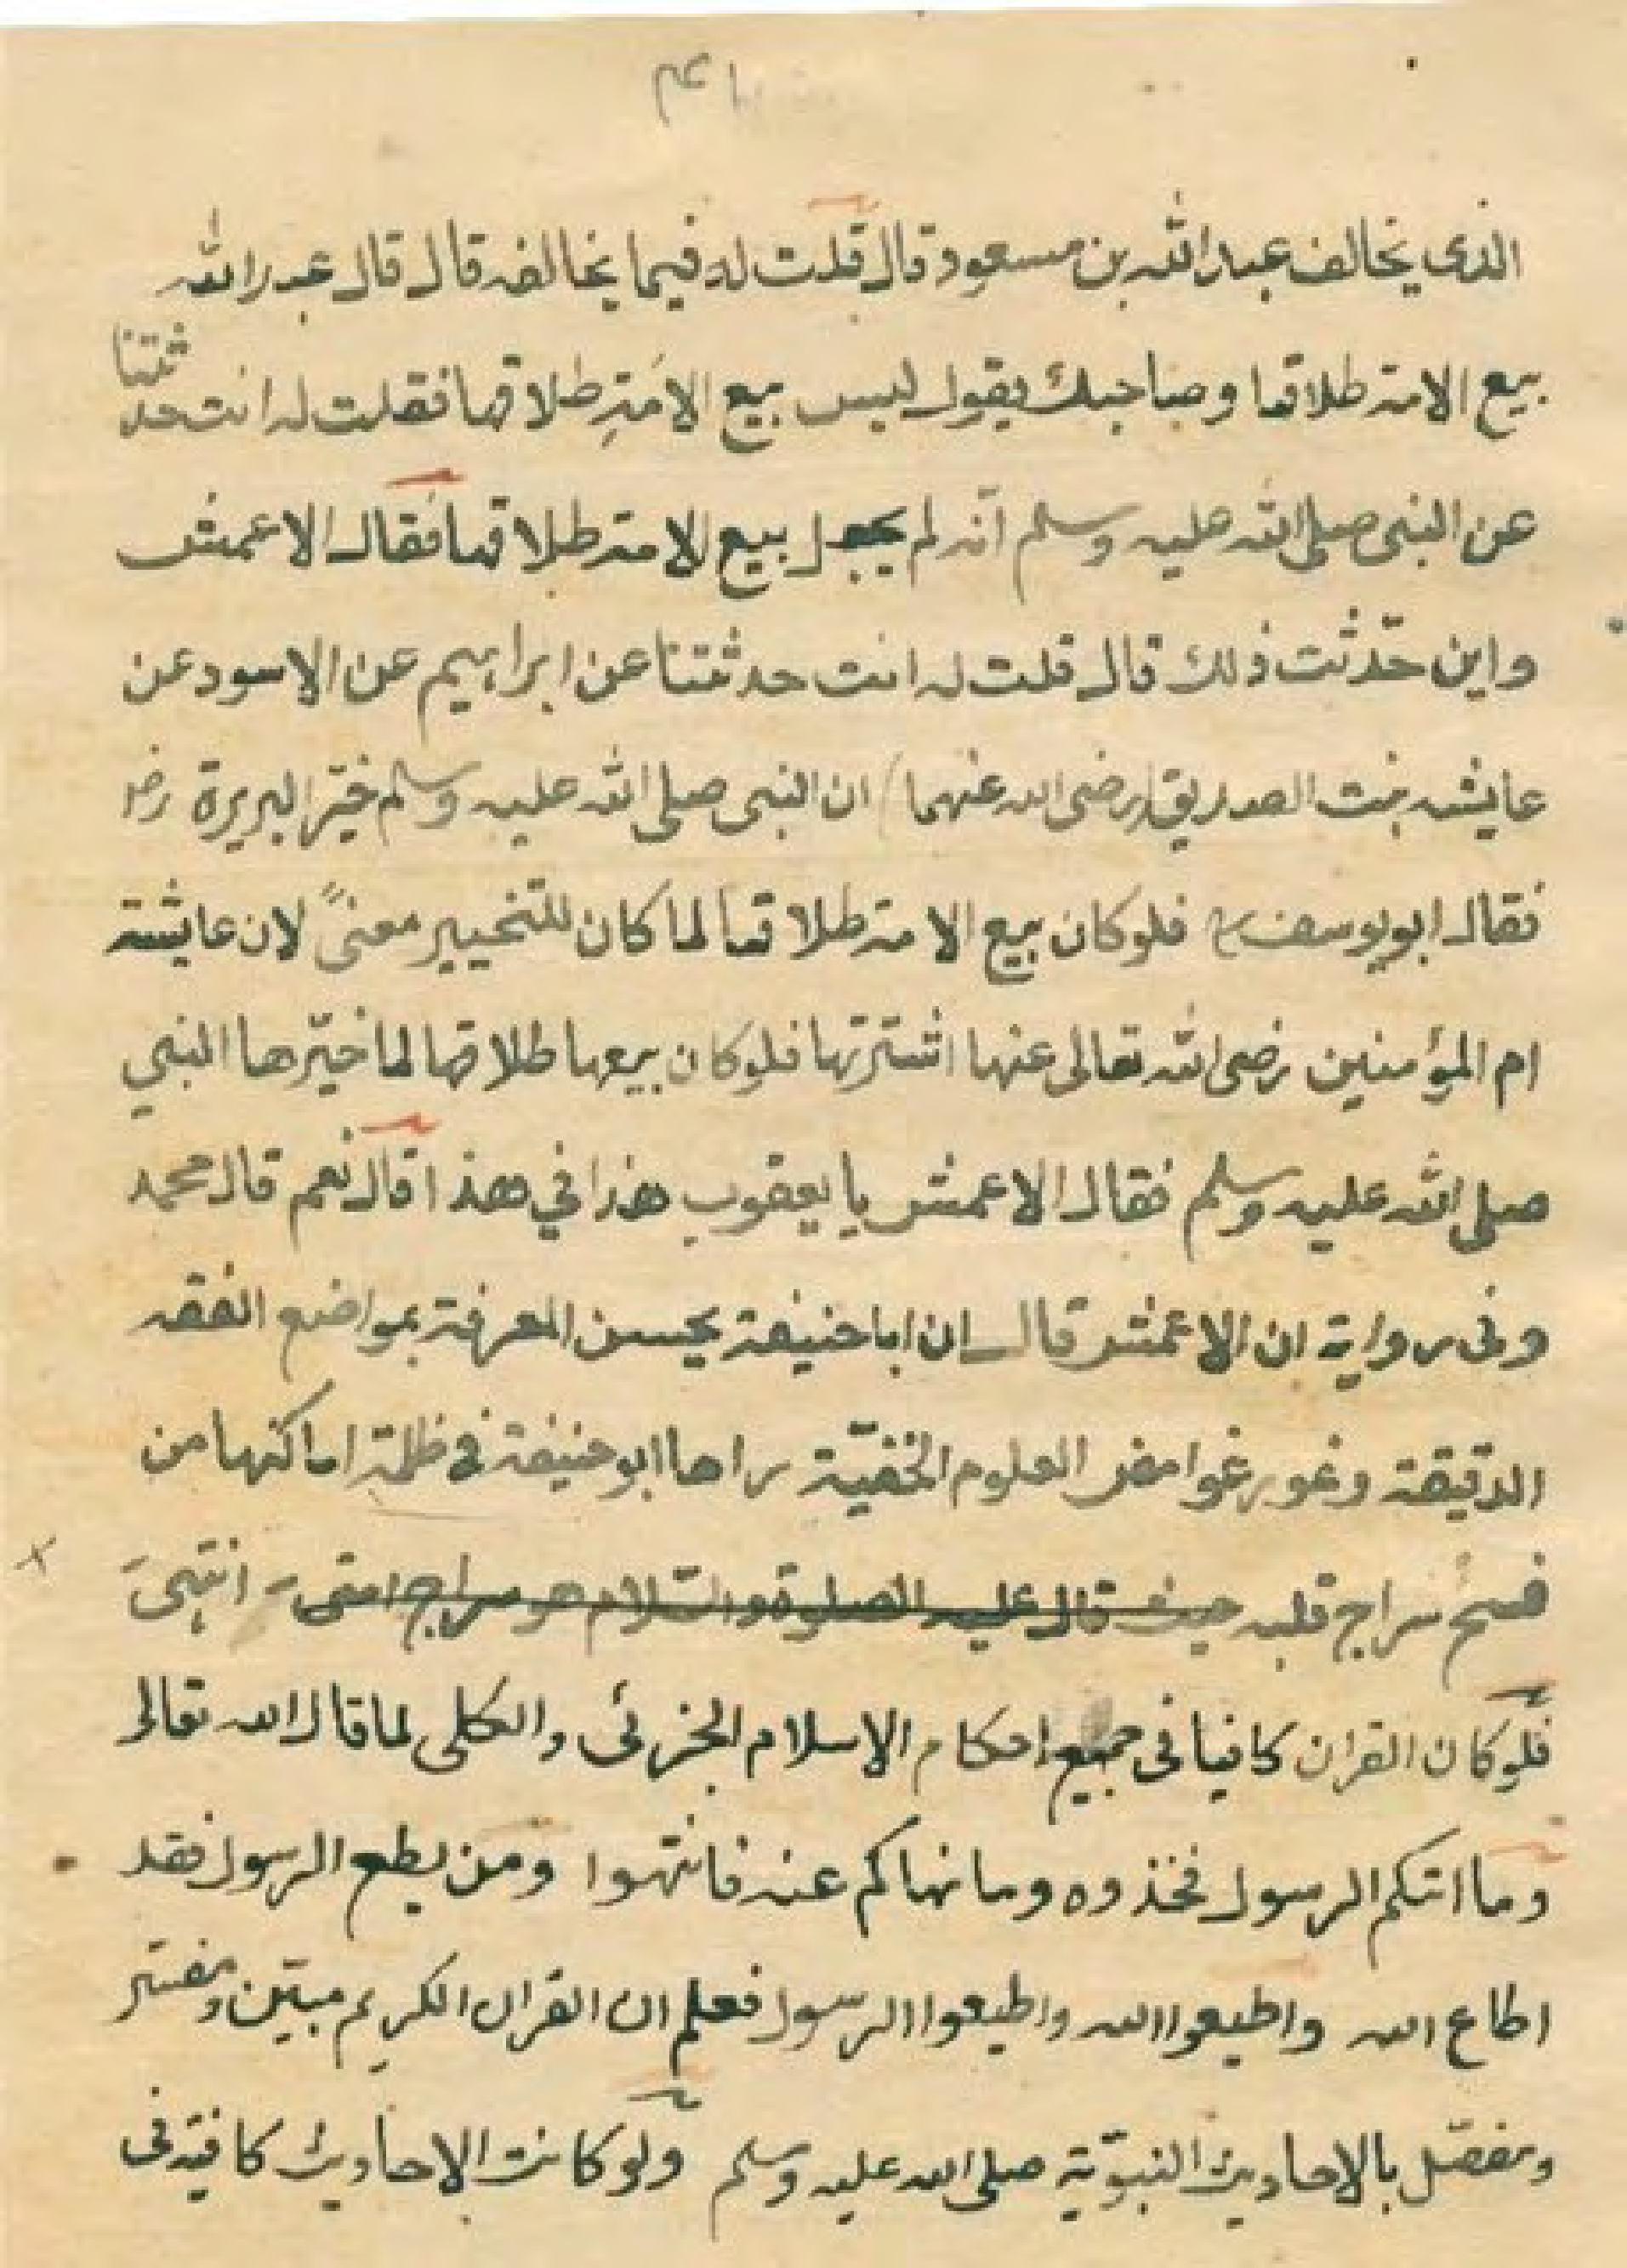 الذى يخالف عبد الله بن مسعود قال قلت له فيما يخالفه قال قال عبد الله
بيع الامة طلاقها وصاحبك يقول ليس بيع الاَمَةِ طلاقها فقلت له انت حدثتنا
عن النبى صلى الله عليه وسلم انّه لم يجعل بيع الامة طلاقها فقال الاعمش
واين حدّثت ذلك قال قلت له انت حدثتنا عن ابراهيم عن الاسود عن
عايشه بنت الصديق (رضى الله عنهما) ان النبى صلى الله عليه وسلم خيّر البريرة رضـ
فقال ابو يوسف فلو كان بيع الامة طلاقها لما كان للتخيير معنىً لان عايشة
ام المؤمنين رضى الله تعالى عنها اشترتها فلو كان بيعها طلاقها لما خيّرها النبي
صلى الله عليه وسلم فقال الاعمش يا يعقوب هذا في هذا قال نعم قال محمد
وفى رواية ان الاعمش قال ان ابا حنيفة يحسن المعرفة بمواضع الفقه
الدقيقة وغور غوامض العلوم الخفيّة راها ابو حنيفة فى ظلمة اماكنها من
سراج قلبه حيث قال عليه الصلوة والسّلام هو سراج امتى انتهىَ
فلو كان القران كافيا فى جميع احكام الاسلام الجزئى والكلى لما قال الله تعالى
وما اتكم الرسول فخذوه وما نهاكم عنه فانتهوا ومن يطع الرسول فقد
اطاع الله واطيعوا الله واطيعوا الرسول فعلم ان القران الكريم مبيّن ومفسّر
ومفصّل بالاحاديث النبويّة صلى الله عليه وسلم ولو كانت الاحاديث كافية فى